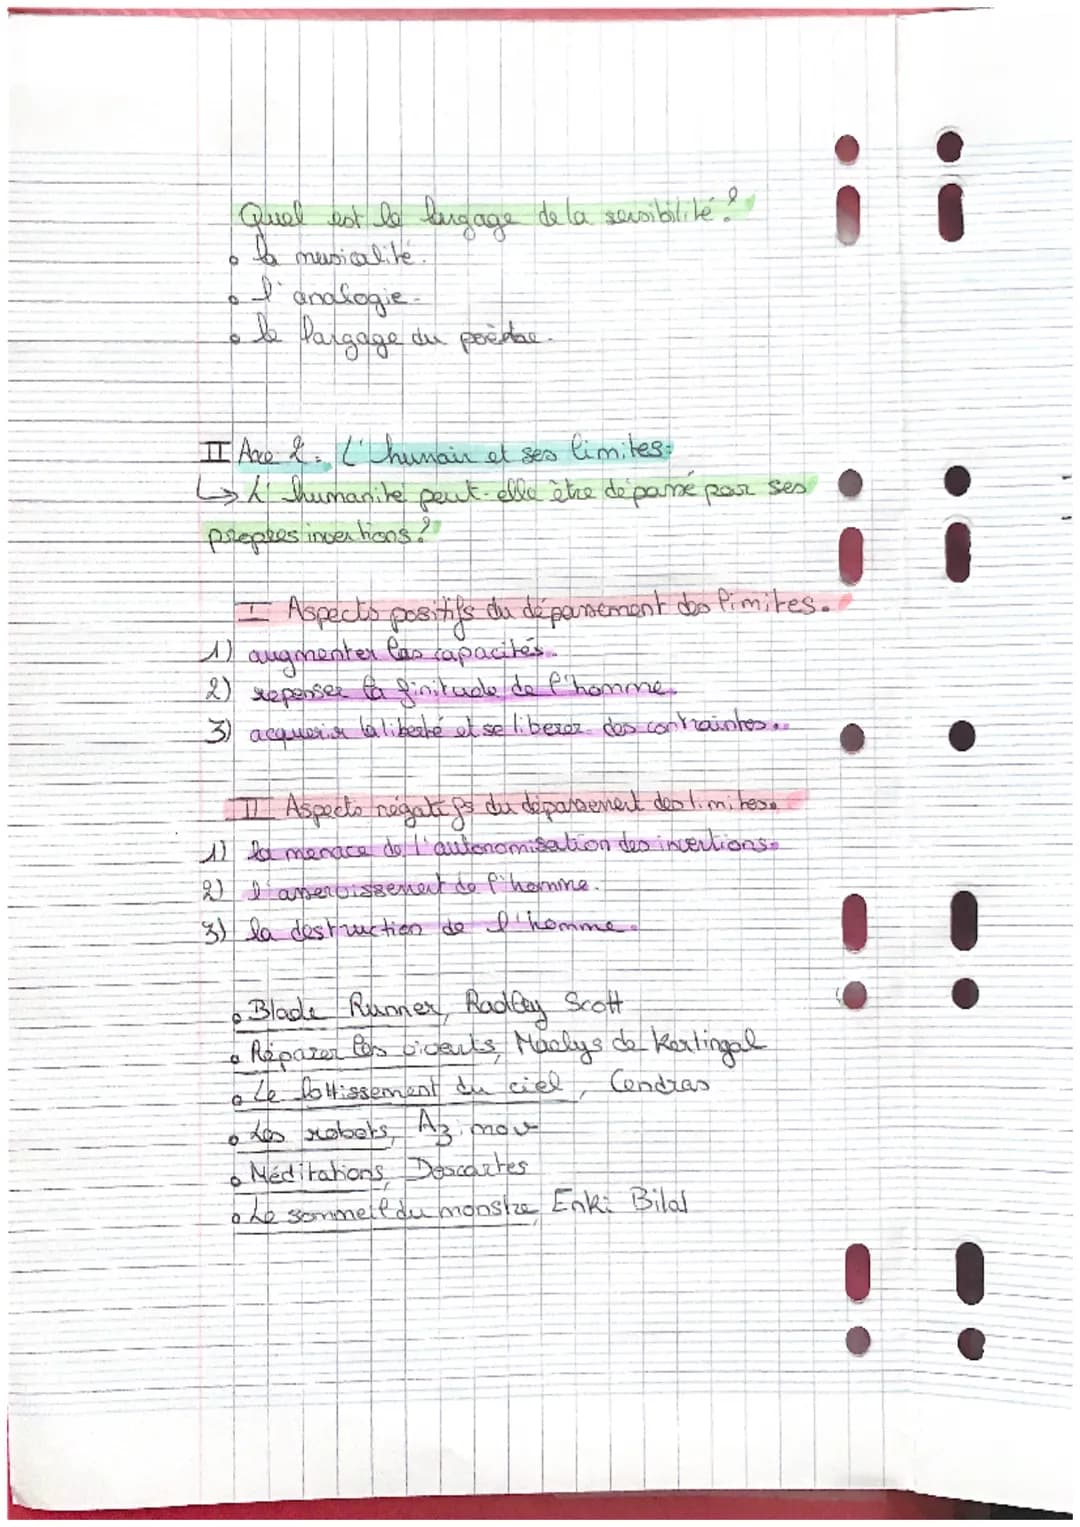 Quel est le langage de la sensibilité ?
• la musicalité.
• l'analogie.
• le langage du poète.
II Axe 2 : L'humain et ses limites.
↳ L'humanité peut-elle être dépassé par ses
propres inventions ?
I Aspects positifs du dépassement des limites.
1) augmenter les capacités.
2) repenser la finitude de l'homme.
3) acquerir la liberté et se liberer des contraintes.
II Aspects négatifs du dépassement des limites.
1) la menace de l'autonomisation des inventions.
2) l'asservissement de l'homme.
3) la destruction de l'homme.
• Blade Runner, Radley Scott
• Réparer les vivants, Maelys de Kertingal
• Le lottissement du ciel, Cendras
• Les robots, Azimov
• Méditations, Descartes
• Le sommeil du monstre, Enki Bilal